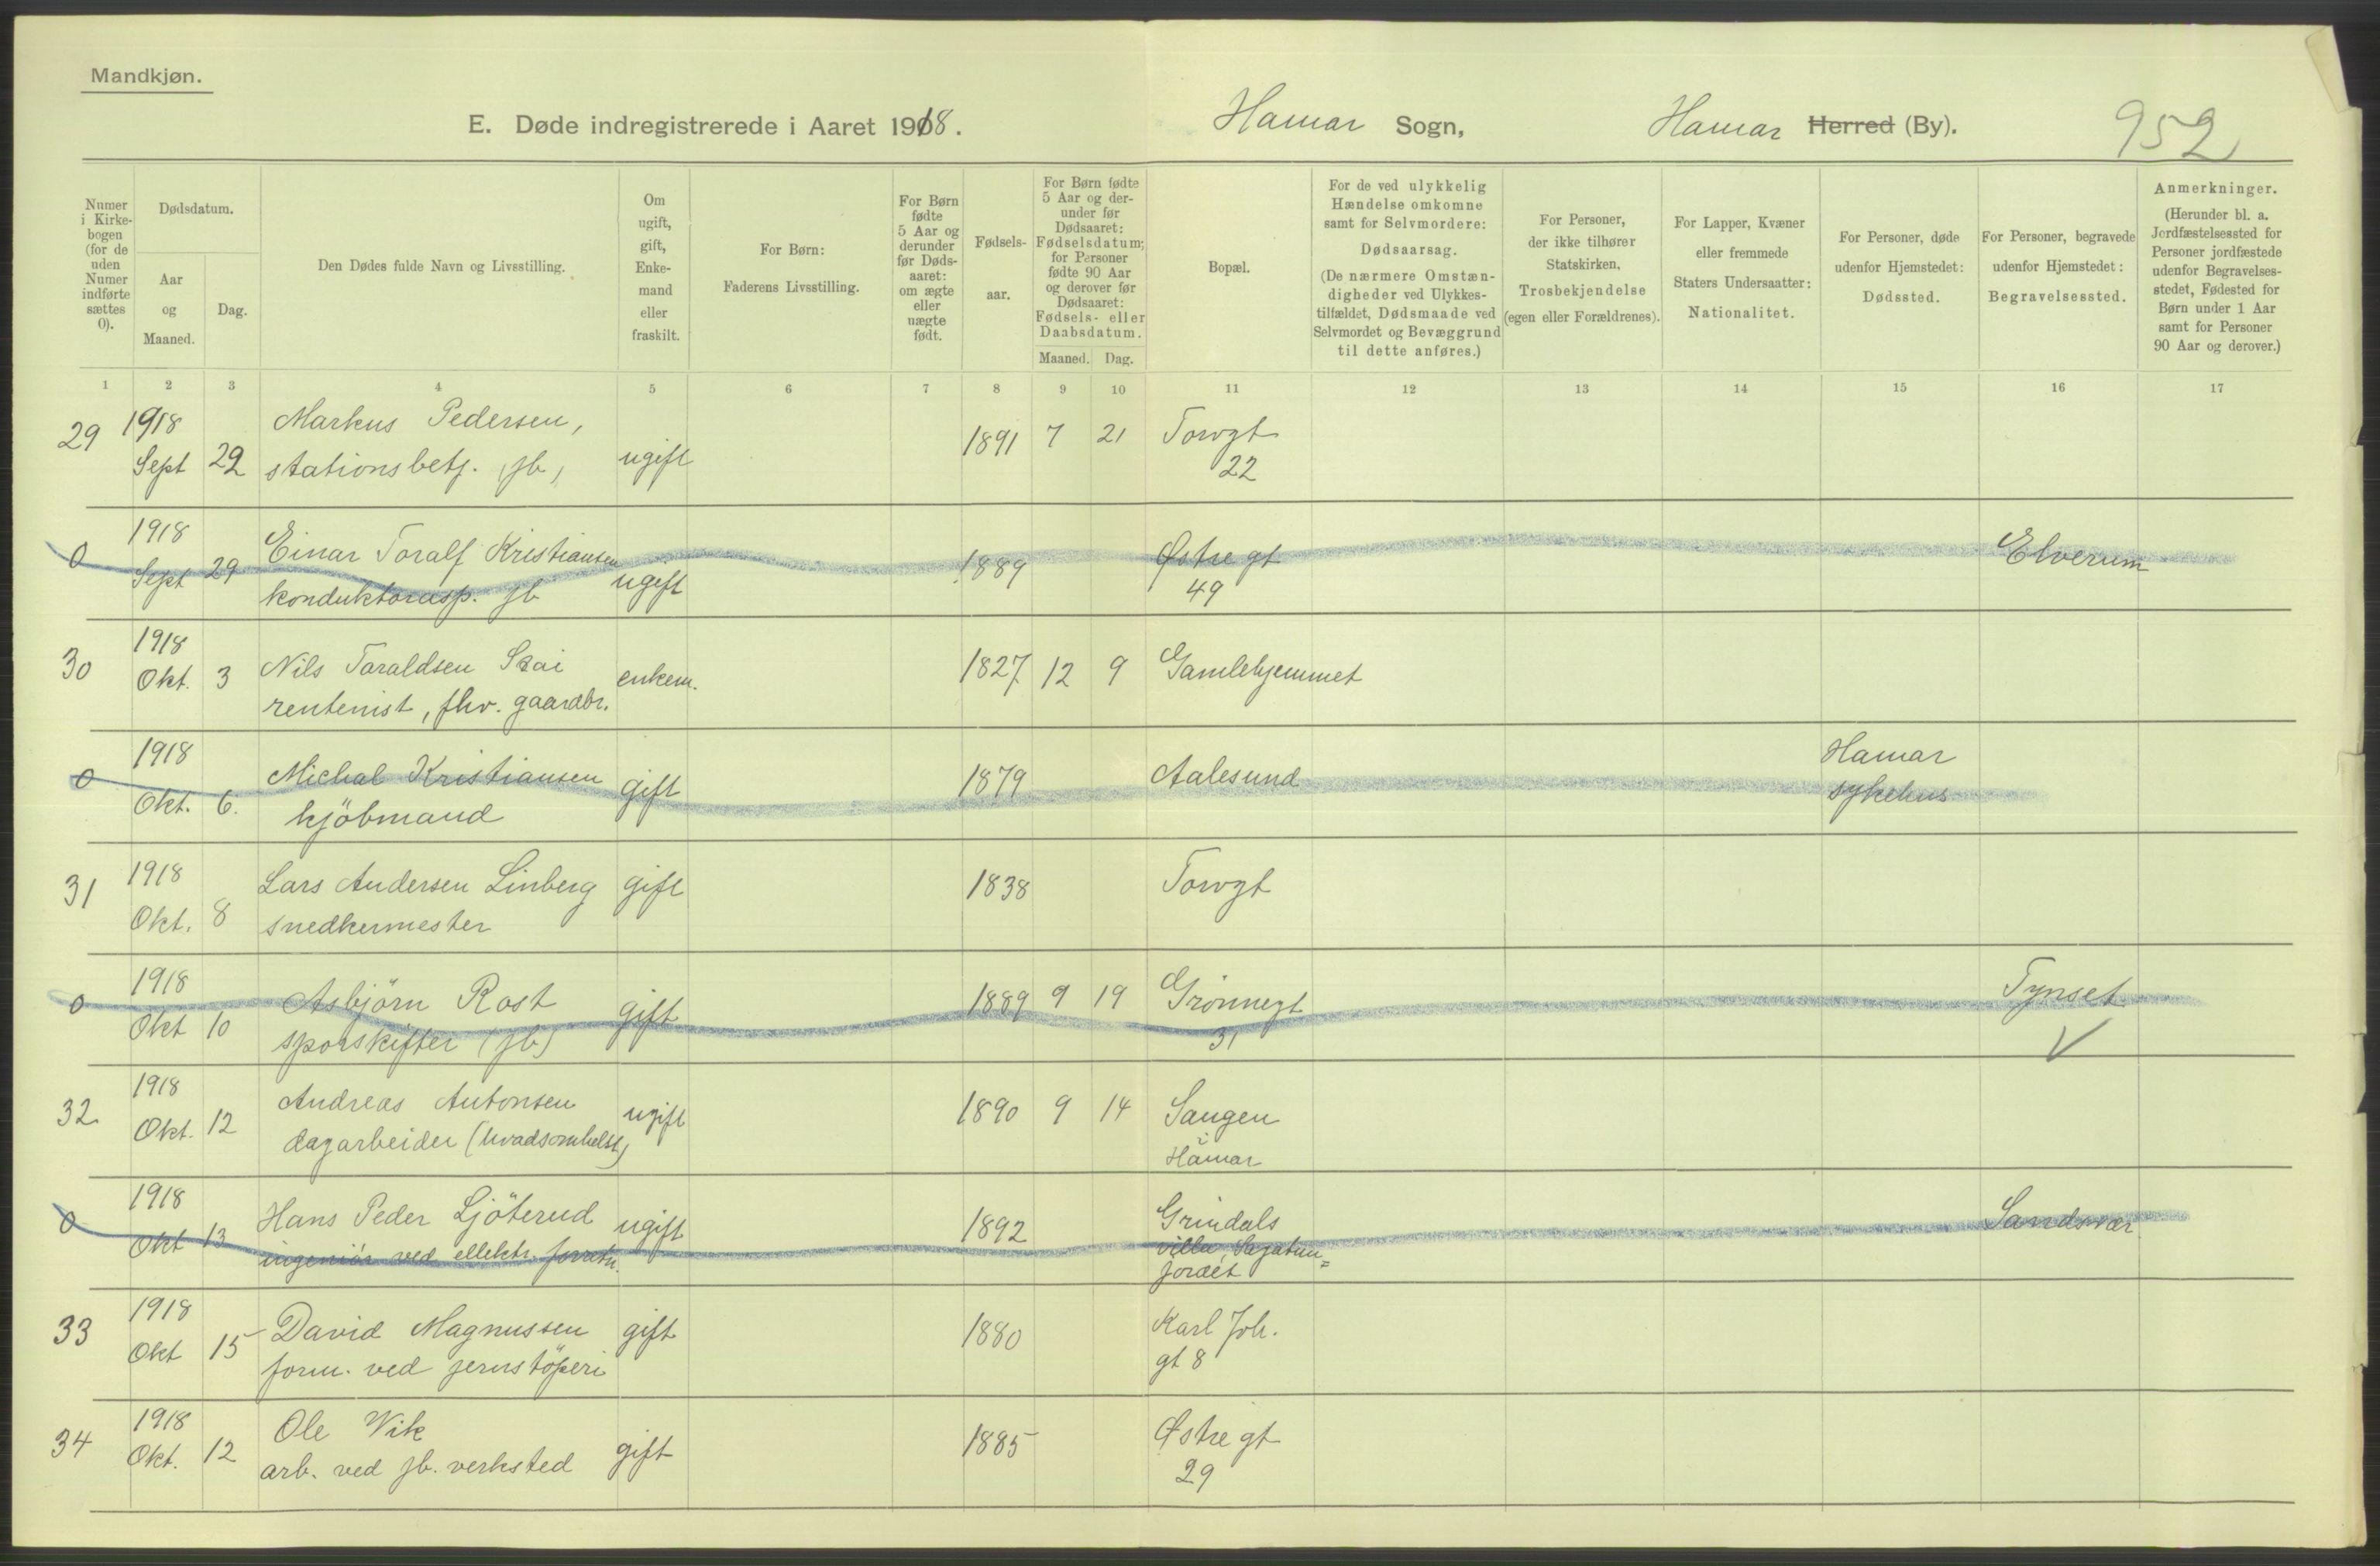 Mandkjøn.
E. Døde indregistrerede i Aaret 1918. Hamar Sogn, Hamar Herred (By). 952
Numer i Kirkebogen (for de uden Numer indførte sættes 0).
Dødsdatum.
Aar og Maaned.
Dag.
Den Dødes fulde Navn og Livsstilling.
Om ugift, gift, Enkemand eller fraskilt.
For Børn: Faderens Livsstilling.
For Børn fødte 5 Aar og derunder før Dødsaaret: om ægte eller uægte født.
Fødselsaar.
For Børn fødte 5 Aar og derunder før Dødsaaret: Fødselsdatum; for Personer fødte 90 Aar og derover før Dødsaaret: Fødsels- eller Daabsdatum.
Maaned. Dag.
Bopæl.
For de ved ulykkelig Hændelse omkomne samt for Selvmordere: Dødsaarsag. (De nærmere Omstændigheder ved Ulykkestilfældet, Dødsmaade ved Selvmordet og Bevæggrund til dette anføres.)
For Personer, der ikke tilhører Statskirken, Trosbekjendelse (egen eller Forældrenes).
For Lapper, Kvæner eller fremmede Staters Undersaatter: Nationalitet.
For Personer, døde udenfor Hjemstedet: Dødssted.
For Personer, begravede udenfor Hjemstedet: Begravelsessted.
Anmerkninger. (Herunder bl. a. Jordfæstelsessted for Personer jordfæstede udenfor Begravelsesstedet, Fødested for Børn under 1 Aar samt for Personer 90 Aar og derover.)
1 2 3 4 5 6 7 8 9 10 11 12 13 14 15 16 17
29 1918 Markus Pedersen, 1891 7 21 Torvgt
Sept 29 stationsbetj. (jb) ugift 22
0 1918 Einar Toralf Kristiansen 1889 Østregt Elverum
Sept 29 konduktørasp. jb ugift 49
30 1918 Nils Taraldsen Skai enkem. 1827 12 9 Gamlehjemmet
Okt. 3 rentenist, fhv. gaardbr.
0 1918 Michal Kristiansen gift 1879 Aalesund Hamar
Okt. 6. kjöbmand sykehus
31 1918 Lars Andersen Linberg gift 1838 Torvgt
Okt. 8 snedkermester
0 1918 Asbjörn Rost gift 1889 9 19 Grönnegt Tynset
Okt 10 sporskifter (jb) 31
32 1918 Andreas Antonsen ugift 1890 9 14 Sangen
Okt. 12 dagarbeider (hvadsomhelst) i Hamar
0 1918 Hans Peder Ljöterud ugift 1892 Grindals Sandsvær
Okt 13 ingeniör ved ellektr. forretn. villa, Sagatun=
jordet
33 1918 David Magnussen gift 1880 Karl Joh.
Okt 15 form. ved jernstöperi gt 8
34 1918 Ole Vik 1885 Østregt
Okt. 12 arb. ved jb. verksted gift 29